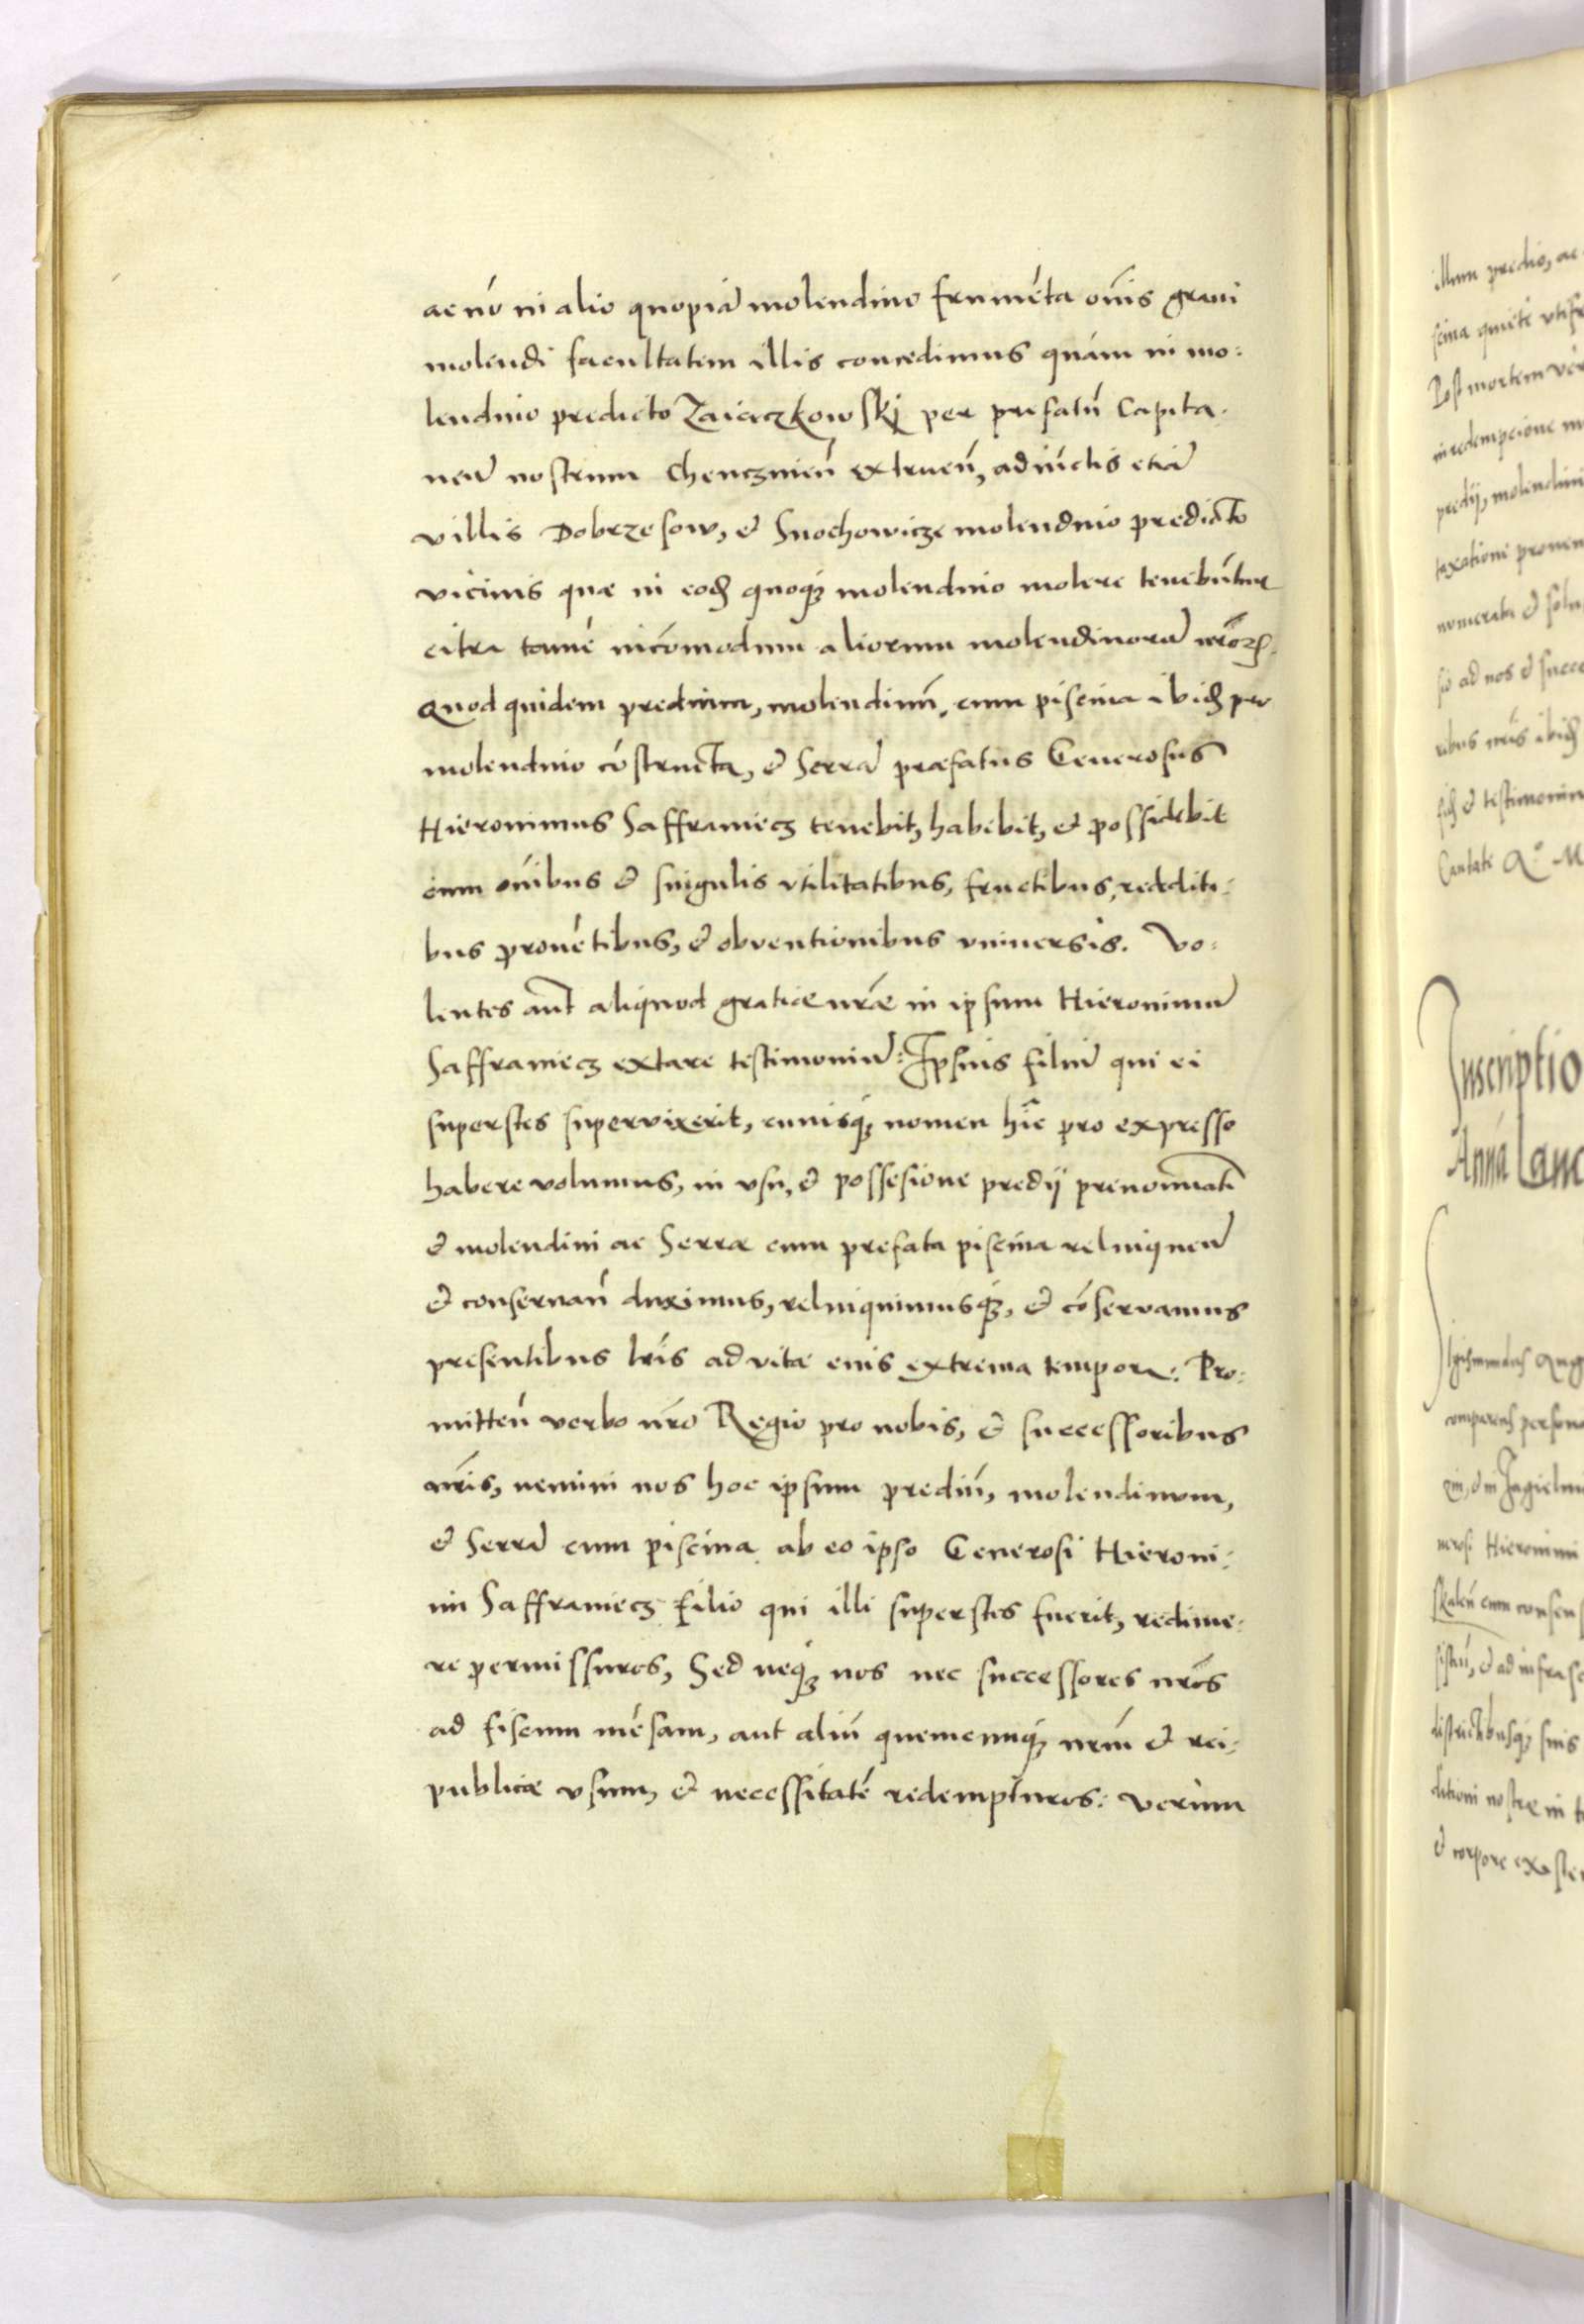 ac nō in alio quopiā molendino frumēta oīs grani
molendi facultatem illis concedimus quàm in mo:
lendino predicto Zaiaczkowskj per prefatū Capita:
neū nostrum Chenczinēn extruēn, adiūctis etiā
villis Dobrzesow, et Snochowicze molendino predicto
vicinis quæ in eod quoq molendino molere tenebūtur
citra tamē incōmodum aliorum molendinorū nrōrum.
Quod quidem predium, molendinū, cum piscina ibid pro
molendino cōstructa, et Serrā præfatus Generosus
Hieronimus Saffraniecz tenebit, habebit, et possidebit
cum oībus et singulis vtilitatibus, fructibus, redditi:
bus prouētibus, et obventionibus vniuersis. Vo:
lentes aūt aliquod gratiæ nrāe in ipsum Hieronimū
Saffraniecz extare testimoniū: Ipsius filiū qui ei
superstes supervixerit, cuiusq nomen hīc pro expresso
habere volumus, in vsu, et possesione predij prenoīnati
et molendini ac Serræ cum prefata piscina relinquēn
et conseruān duximus, relinquimusq, et cōservamus
presentibus lrīs ad vitæ eius extrema tempora: Pro:
mittēn verbo nrō Regio pro nobis, et successoribus
nrīs, nemini nos hoc ipsum prediū, molendinum,
et Serrā cum piscina ab eo ipso Generosi Hieroni:
mi Saffraniecz filio qui illi superstes fuerit, redime:
re permissuros, Sed neq nos nec successores nrōs
ad fiscum mēsam, aut aliū quemcunq nrūm et rei:
publicæ vsum, et necessitatē redempturos: verùm
illum predio, ac
Post mortem
in redempcione
predij, molendini
taxationi
numerata et
sio ad nos et succe
et testimonium
Inscriptio
Anna Lanc
comparens
nerosi Hieronimi
cum consen
et ad infrasc
sius
ditioni nostræ in
et corpore existen